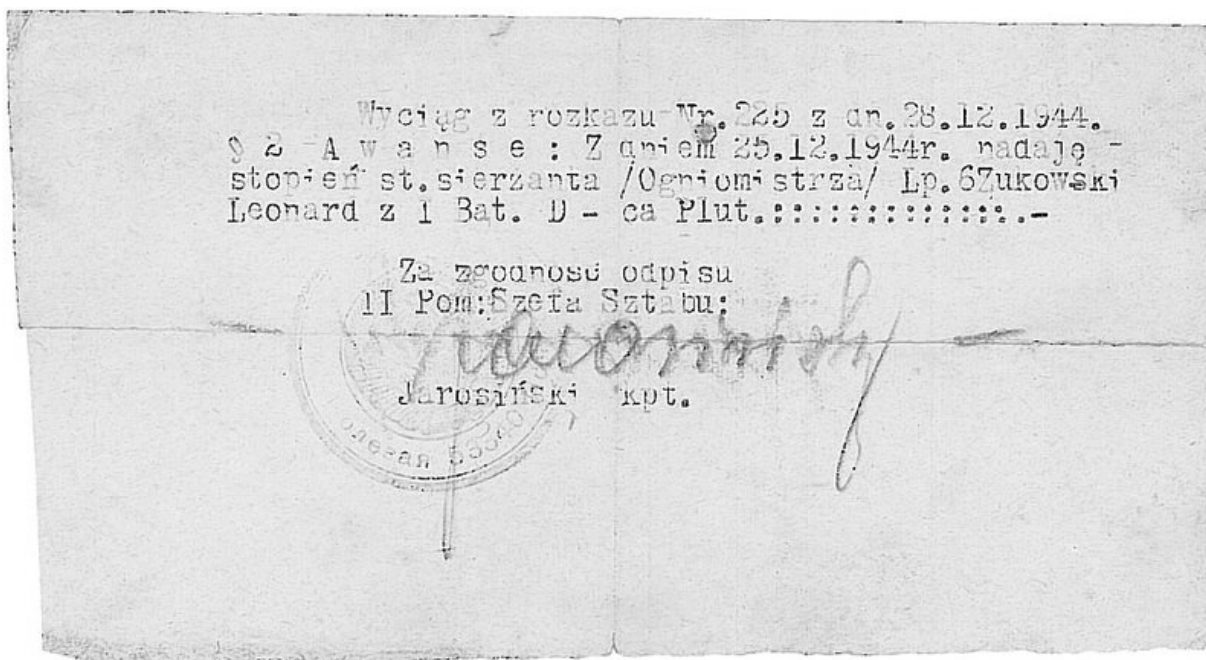 Wyciąg z rozkazu Nr.225 z dn.28.12.1944.
§ 2 A w a n s e : Z dniem 25.12.1944r. nadaję -
stopień st.sierzanta /Ogniomistrza/ Lp.6Zukowski
Leonard z 1 Bat. D - ca Plut.:::::::::::::::.-
Za zgodność odpisu
II Pom:Szefa Sztabu:
Jarosiński kpt.